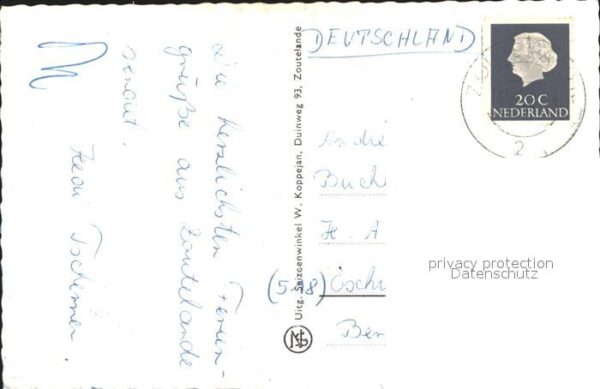 Die herzlichsten Ferien-
grüße aus Zoutelande
sendet
Uitg. Seizoenwinkel W. Koppejan, Duinweg 93, Zoutelande
DEUTSCHLAND
20 C
NEDERLAND
2
Buch
H A
(548)
privacy protection
Datenschutz